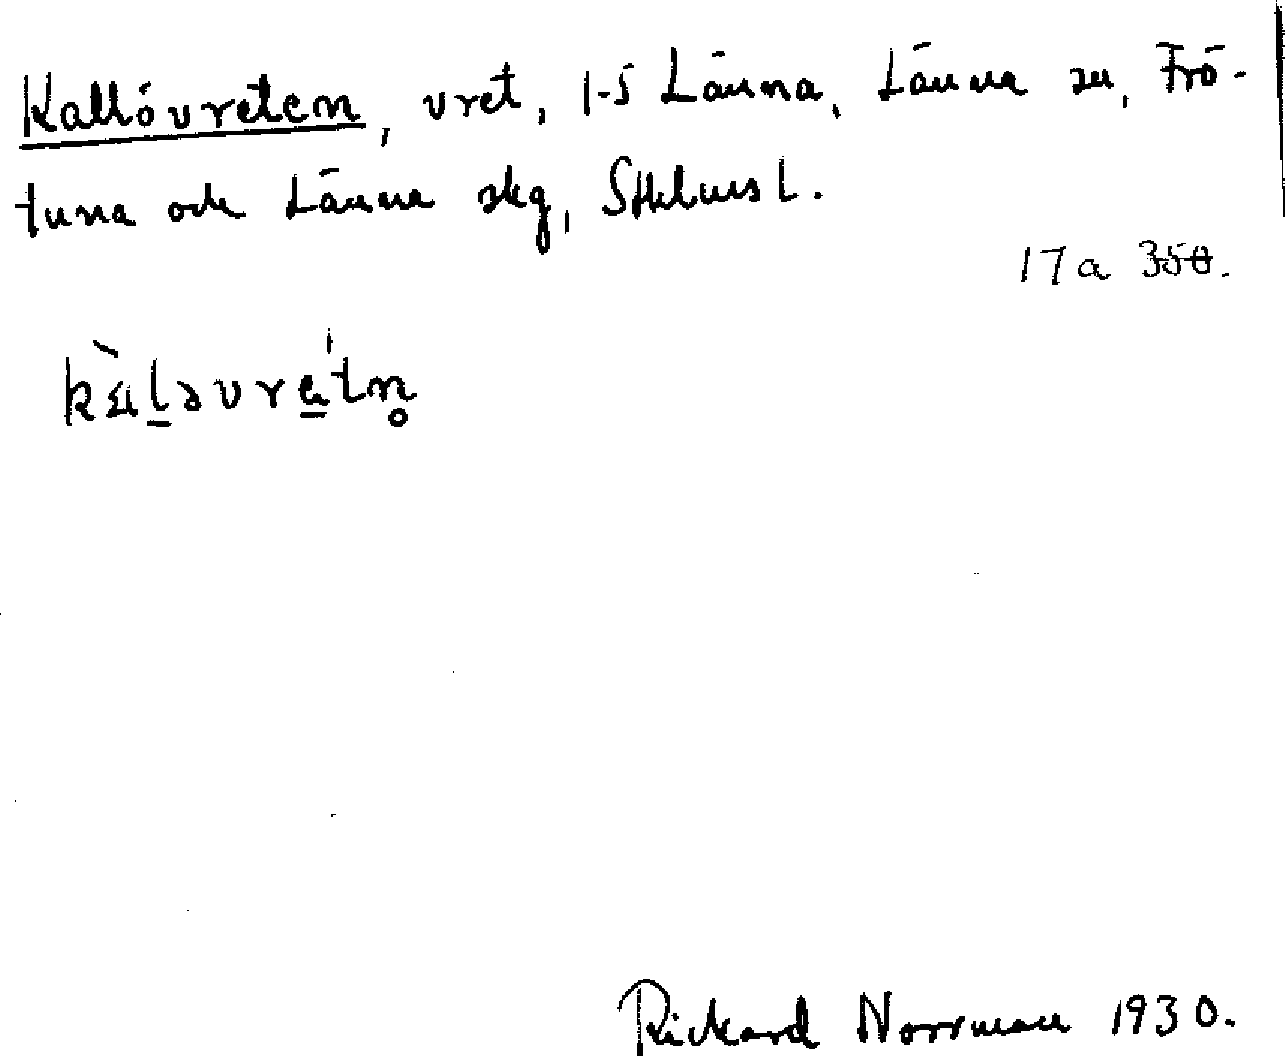 Kallövreten, vret, 1-5 Länna, Länna sn, Frö-
tuna och Länna skg, Sthlms l.
17a 350.
kàl̠əvre̠tn̥
Rickard Norrman 1930.